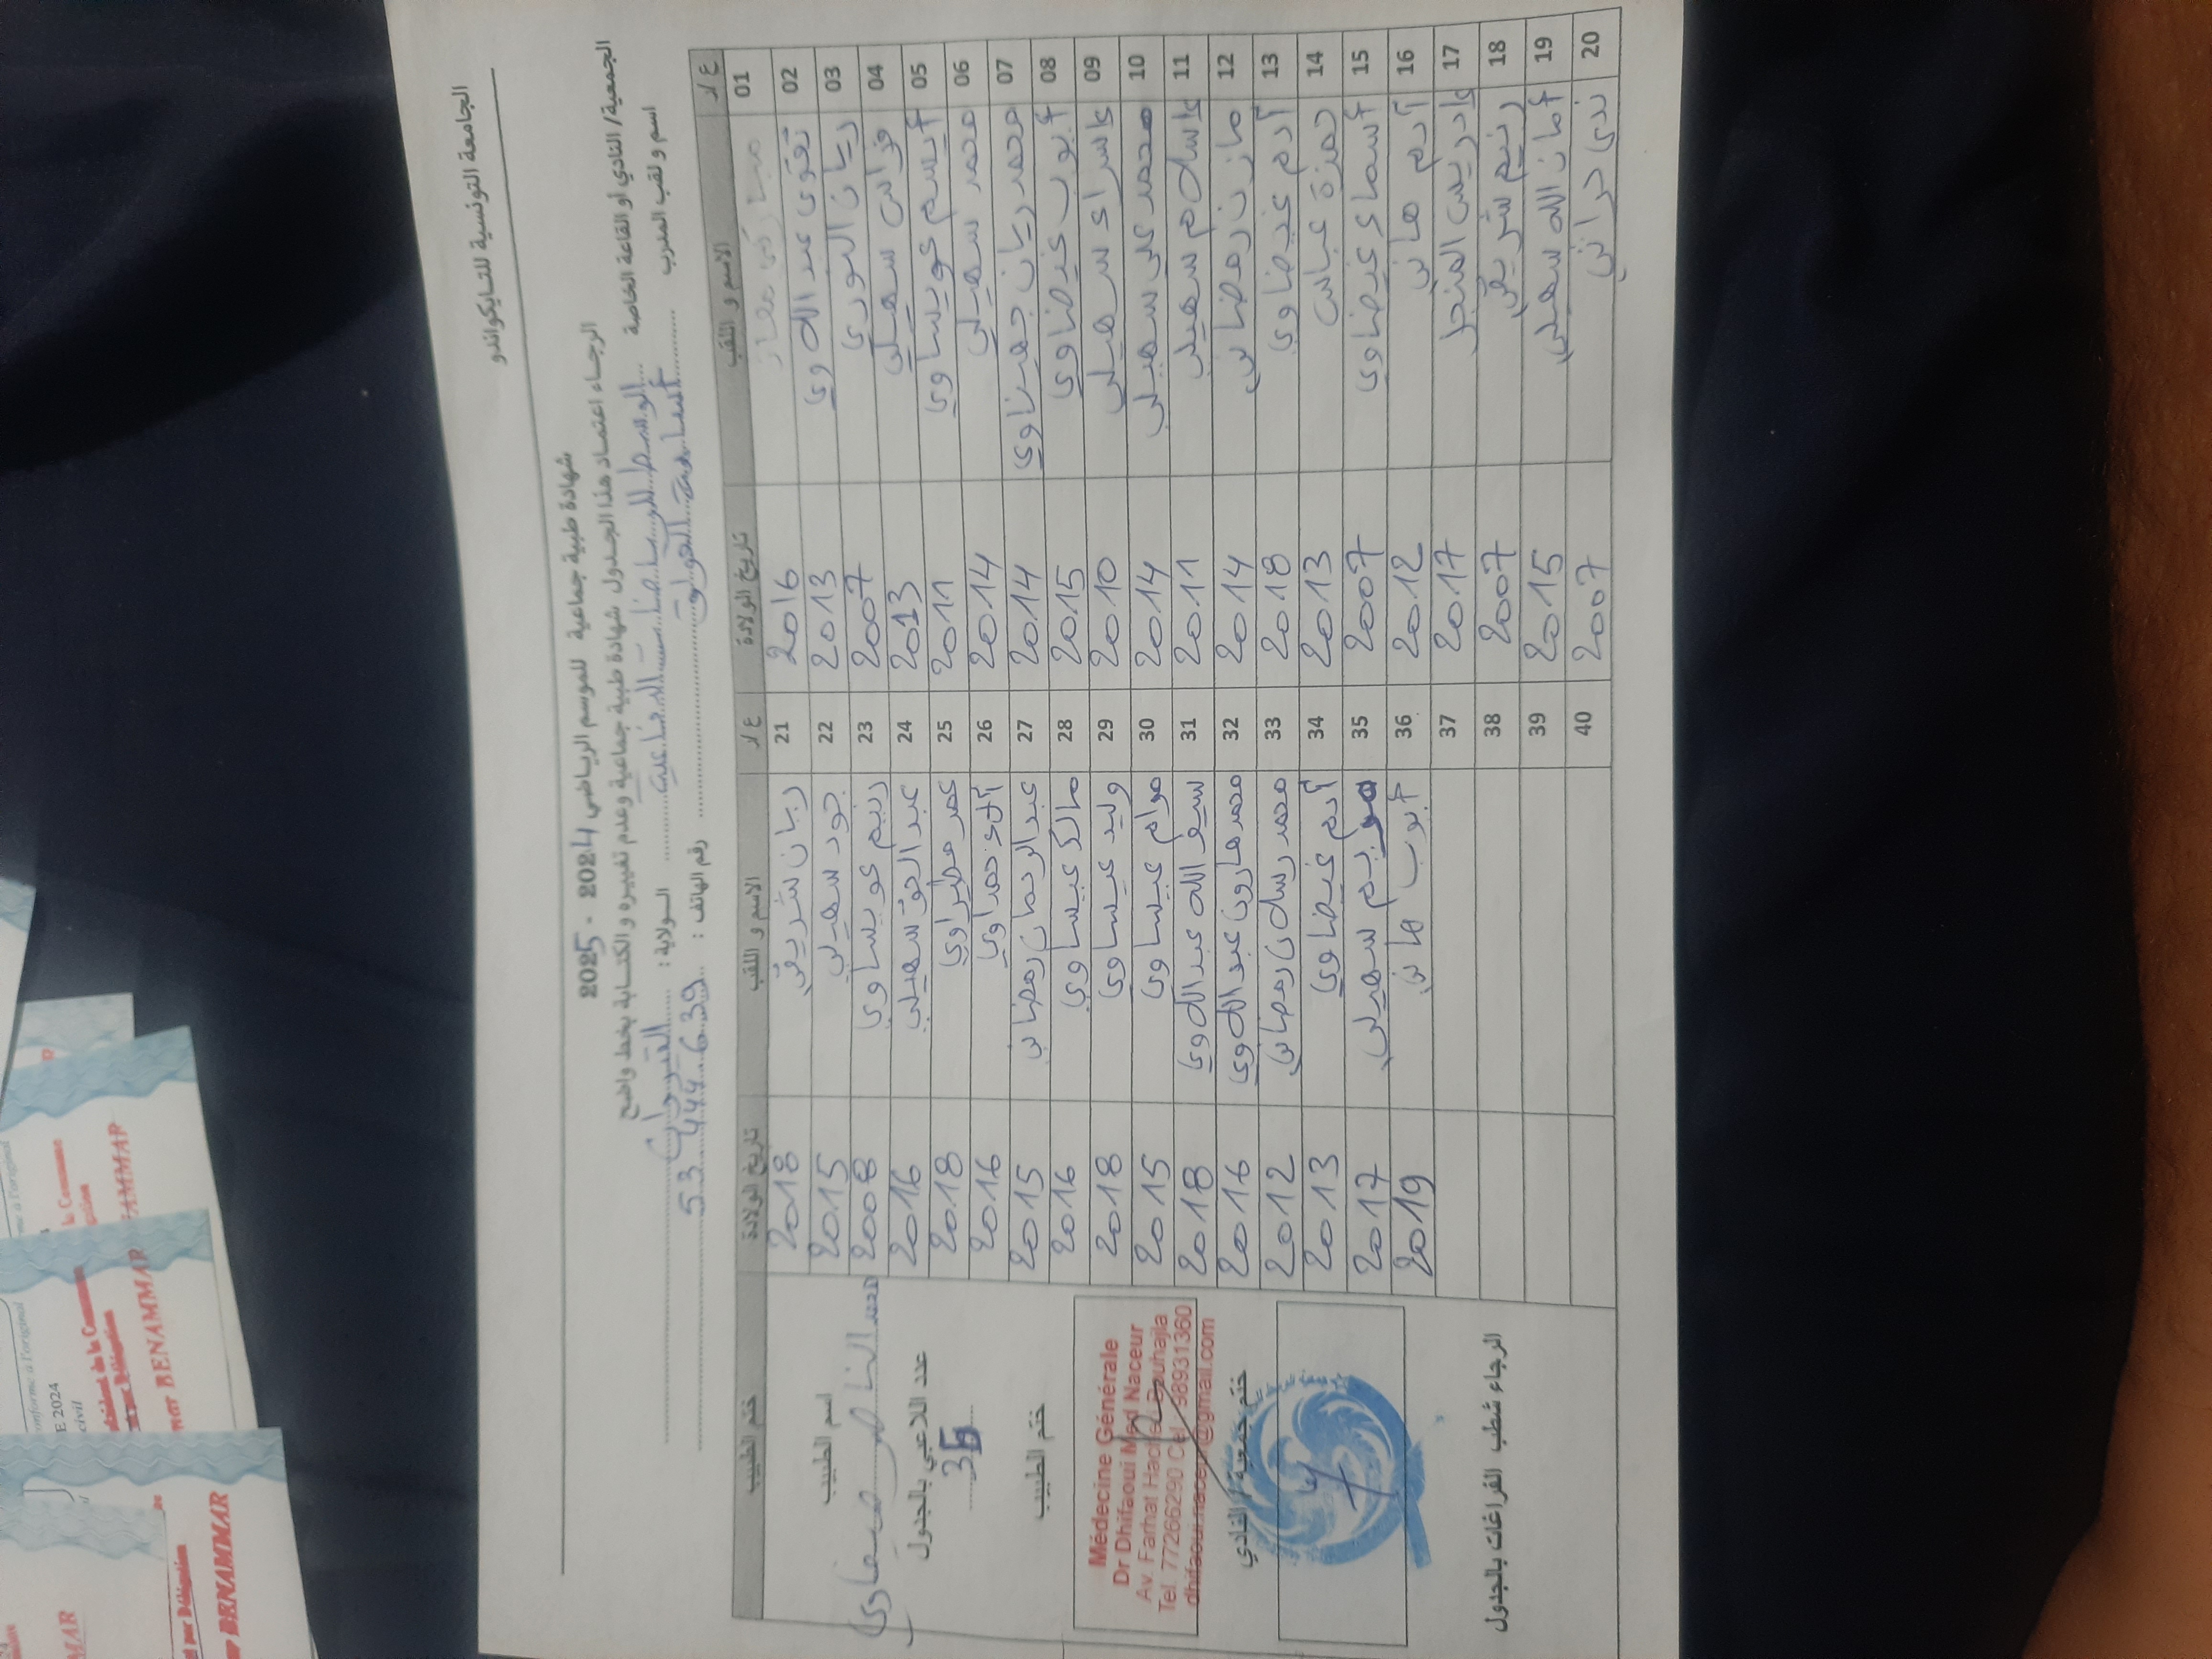 الجامعة التونسية للتايكواندو
شهادة طبية جماعية للموسم الرياضي 2024 - 2025
الرجاء اعتماد هذا الجدول شهادة طبية جماعية وعدم تغييره و الكتابة بخط واضح
الجمعية/ النادي أو القاعة الخاصة الوسط للرياضات الدفاعية الولاية : القيروان
اسم و لقب المدرب أسامة رقم الهاتف : 53 444 639
ع/د الاسم و اللقب تاريخ الولادة ع/د الاسم و اللقب تاريخ الولادة ختم الطبيب
01 2016 21 ريان شريقي 2018
02 تقوى عبد اللاوي 2013 22 جود سهيلي 2015
03 ريان النوري 2007 23 رنيم عويساوي 2008
04 فراس سهيلي 2013 24 عبد الحق سهيلي 2016
05 أيسم عويساوي 2011 25 عمر 2018
06 محمد سهيلي 2014 26 حمداوي 2016
07 محمد ريان جهيناوي 2014 27 عبد الرحمان رمضاني 2015
08 أيوب غيضاوي 2015 28 مالك عيساوي 2016
09 إسراء سهيلي 2010 29 وليد عيساوي 2018
10 محمد علي سهيلي 2014 30 مرام عيساوي 2015
11 إسلام سهيلي 2011 31 سيف الله عبد اللاوي 2018
12 مازن رمضاني 2014 32 محمد هارون عبد اللاوي 2016
13 آدم غيضاوي 2018 33 محمد رسلان رمضاني 2012
14 حمزة عباس 2013 34 آدم غيضاوي 2013
15 أسماء غيضاوي 2007 35 سهيلي 2017
16 آدم هاني 2012 36 أيوب هاني 2019
17 إدريس المنجل 2017 37
18 رنيم شريقي 2007 38
19 أمان الله سهيلي 2015 39
20 ندى حراثي 2007 40
اسم الطبيب
محمد الناصر ضيفاوي
عدد اللاعبي بالجدول
36
ختم الطبيب
Médecine Générale
Dr Dhifaoui Med Naceur
Av. Farhat Hached Bouhajla
Tel. 77266290 Cel. 98931360
dhifaoui.naceur@gmail.com
ختم جمعية / النادي
الرجاء شطب الفراغات بالجدول
E 2024
civil
BENAMMAR
BENAMMAR